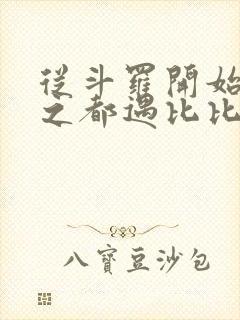 從斗羅開始
之都遇比比
八寶豆沙包